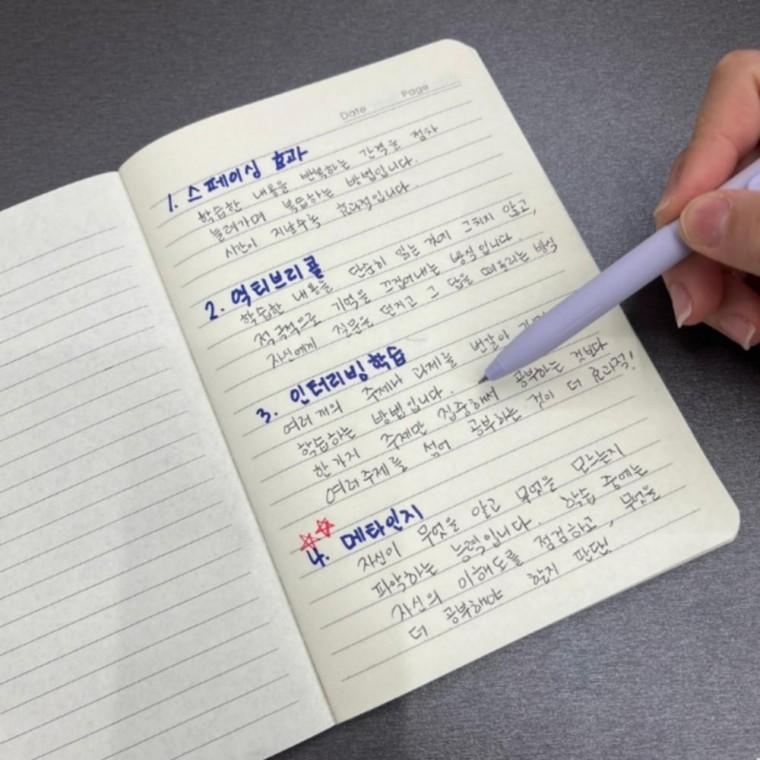 Date Page
1. 스페이싱 효과
학습한 내용을 반복하는 간격을 점차
늘려가며 복습하는 방법입니다.
시간이 지날수록 효과적입니다.
2. 액티브리콜
학습한 내용을 단순히 읽는 것에 그치지 않고,
적극적으로 기억을 끄집어내는 방식입니다.
자신에게 질문을 던지고 그 답을 떠올리는 방식
3. 인터리빙 학습
여러 개의 주제나 과제를 번갈아
학습하는 방법입니다.
한가지 주제만 집중해서 공부하는 것보다
여러 주제를 섞어 공부하는 것이 더 효과적!
4. 메타인지
자신이 무엇을 알고 무엇을 모르는지
파악하는 능력입니다. 학습 중에는
자신의 이해도를 점검하고, 무엇을
더 공부해야 할지 판단!